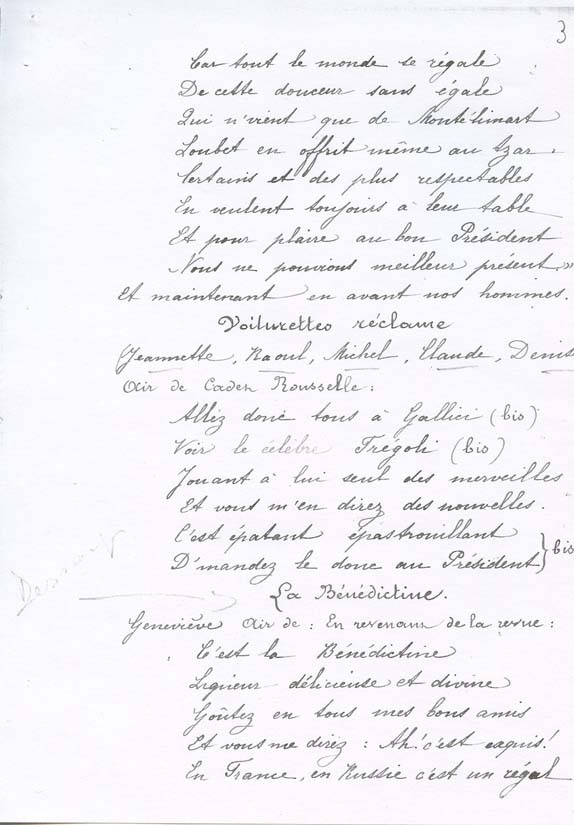 3
Car tout le monde se régale
De cette douceur sans égale
Qui n'vient que de Montélimart
Loubet en offrit même au Czar.
Certains et des plus respectables
En veulent toujours à leur table
Et pour plaire au bon Président
Nous ne pouvions meilleur présent.»
Et maintenant en avant nos hommes.
Voiturettes réclame
(Jeannette, Raoul, Michel, Claude, Denis
Air de Cadex Rousselle :
Allez donc tous à Gallici (bis)
Voir le célèbre Frégoli (bis)
Jouant à lui seul des merveilles
Et vous m'en direz des nouvelles.
C'est épatant épastrouillant
D'mandez le donc au Président } bis
La Bénédictine.
Geneviève Air de : En revenant de la revue :
C'est la Bénédictine
Liqueur délicieuse et divine
Goûtez en tous mes bons amis
Et vous me direz : Ah! c'est exquis!
En France, en Russie c'est un régal